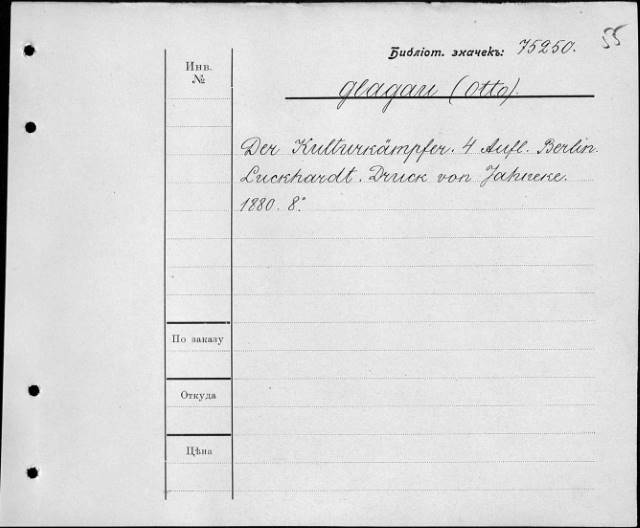 55
Библіот. значекъ: 75250.
Инв.
№
Glagau (Otto).
Der Kulturkämpfer. 4 Aufl. Berlin.
Luckhardt. Druck von Jahncke.
1880. 8°.
По заказу
Откуда
Цѣна